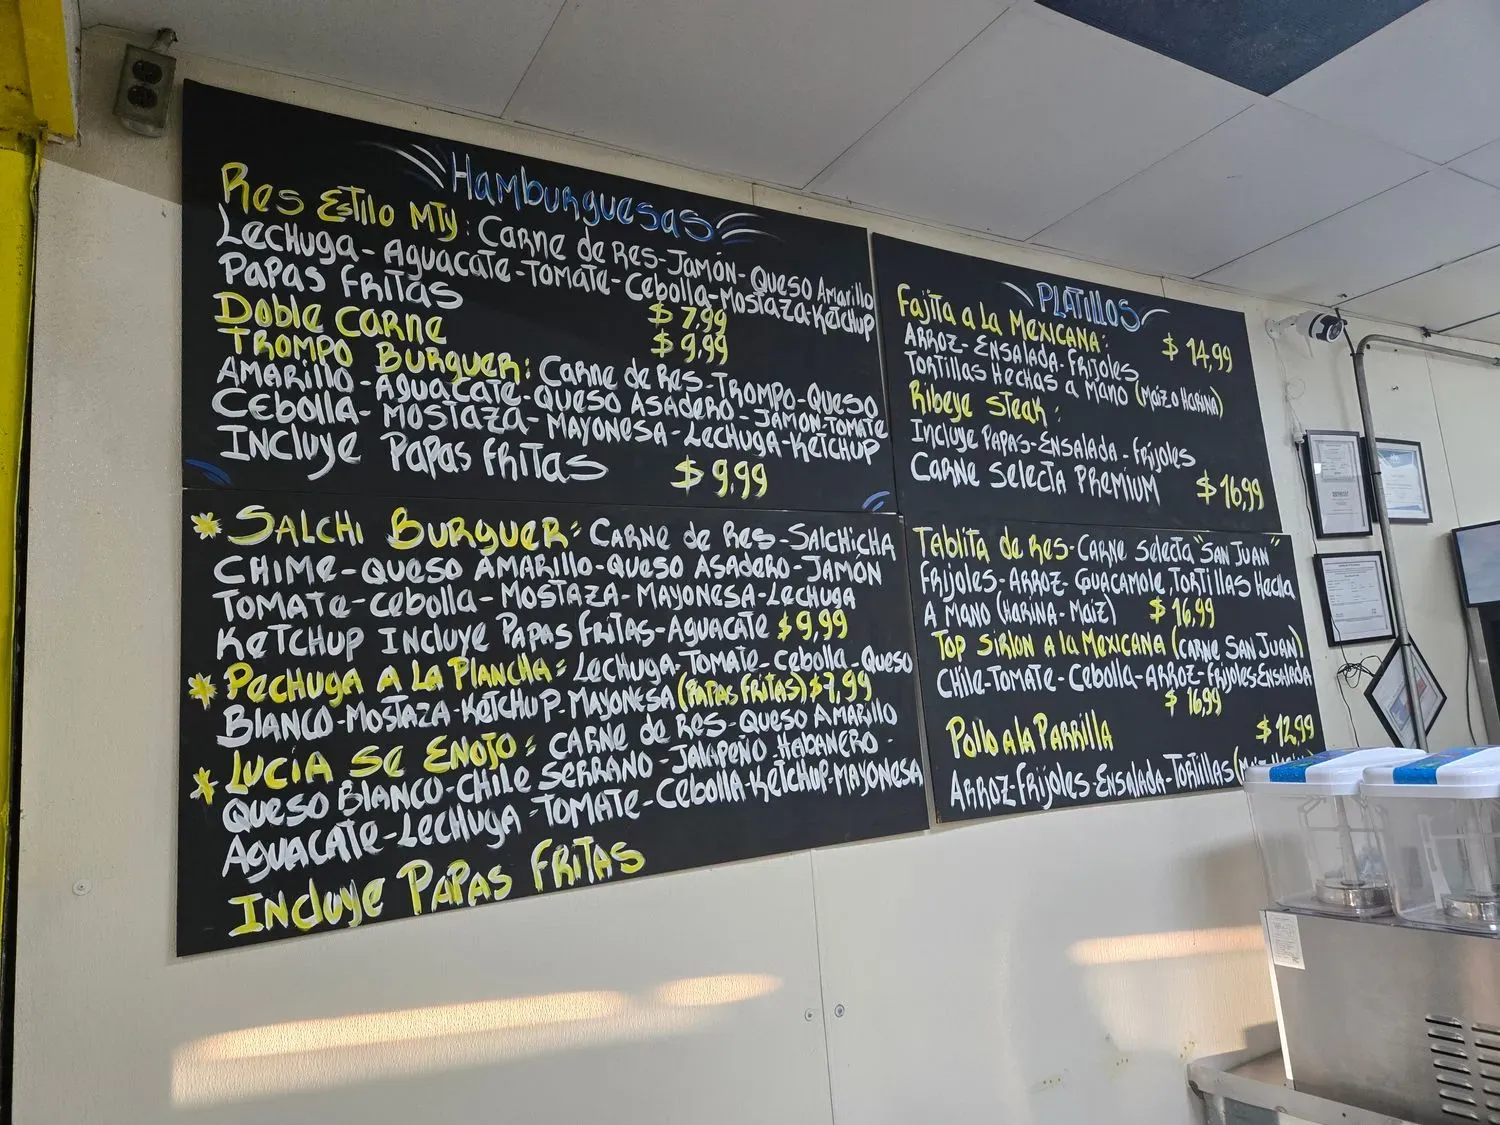 Hamburguesas
Res Estilo Mty: Carne de Res-Jamón-Queso Amarillo
Lechuga-Aguacate-Tomate-Cebolla-Mostaza-Ketchup
Papas Fritas $7,99
Doble Carne $9,99
Trompo Burguer: Carne de Res-Trompo-Queso
Amarillo-Aguacate-Queso Asadero-Jamon-Tomate
Cebolla-Mostaza-Mayonesa-Lechuga-Ketchup
Incluye Papas Fritas $9,99
*Salchi Burguer: Carne de Res-Salchicha
Chime-Queso Amarillo-Queso Asadero-Jamón
Tomate-Cebolla-Mostaza-Mayonesa-Lechuga
Ketchup Incluye Papas Fritas-Aguacate $9,99
*Pechuga a la Plancha: Lechuga-Tomate-Cebolla-Queso
Blanco-Mostaza-Ketchup-Mayonesa (Papas Fritas) $7,99
*Lucia se Enojo: Carne de Res-Queso Amarillo
Queso Blanco-Chile Serrano-Jalapeño-Habanero-
Aguacate-Lechuga-Tomate-Cebolla-Ketchup-Mayonesa
Incluye Papas Fritas
Platillos
Fajita a la Mexicana: $14,99
Arroz-Ensalada-Frijoles
Tortillas Hechas a Mano (Maiz o Harina)
Ribeye Steak:
Incluye Papas-Ensalada-Frijoles
Carne Selecta Premium $16,99
Tablita de Res-Carne Selecta "San Juan"
Frijoles-Arroz-Guacamole, Tortillas Hecha
a Mano (Harina-Maiz) $16,99
Top Sirlon a la Mexicana (Carne San Juan)
Chile-Tomate-Cebolla-Arroz-Frijoles-Ensalada
$16,99
Pollo a la Parrilla $12,99
Arroz-Frijoles-Ensalada-Tortillas